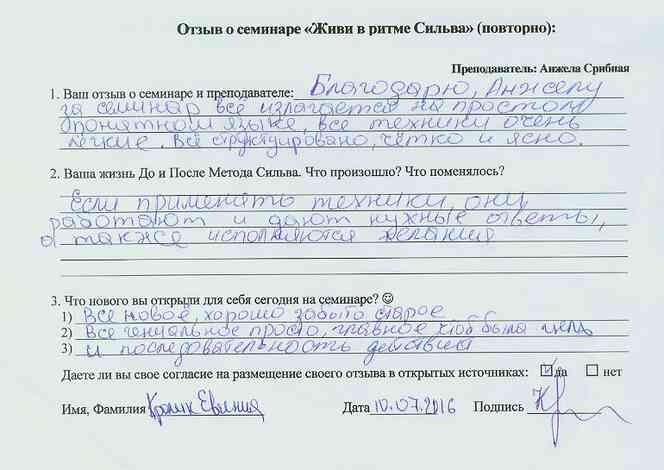 Отзыв о семинаре «Живи в ритме Сильва» (повторно):
Преподаватель: Анжела Срибная
1. Ваш отзыв о семинаре и преподавателе: Благодарю, Анжелу
за семинар всё излагается на простом
понятном языке, все техники очень
лёгкие. Всё структуировано, чётко и ясно.
2. Ваша жизнь До и После Метода Сильва. Что произошло? Что поменялось?
Если применять техники, они
работают и дают нужные ответы,
а также исполняются желания
3. Что нового вы открыли для себя сегодня на семинаре? ☺
1) Всё новое, хорошо забыто старое
2) Всё гениальное просто, главное чтоб была цель
3) и последовательность действий
Даете ли вы свое согласие на размещение своего отзыва в открытых источниках: ☑ да ☐ нет
Имя, Фамилия Евгения Дата 10.07.2016 Подпись